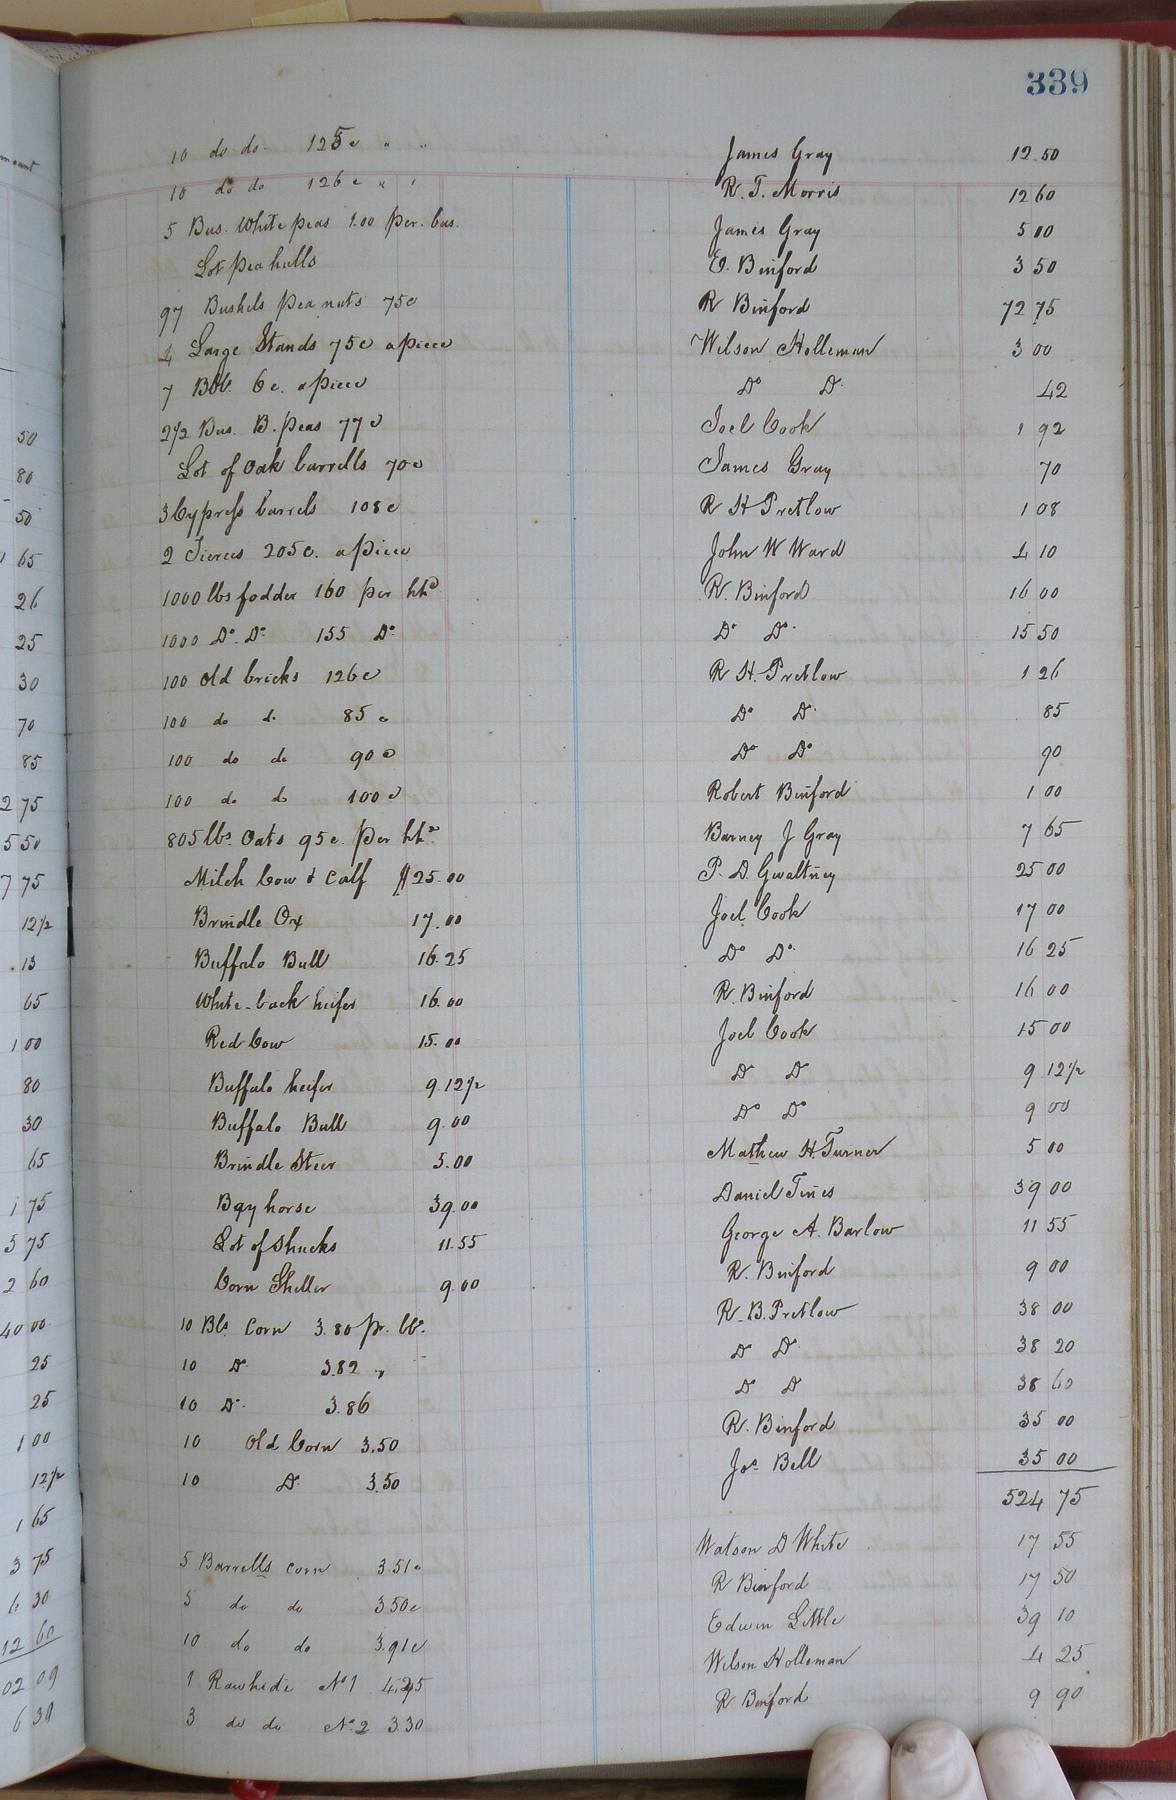 339
10 do do 125c " " James Gray 12 50
10 do do 126c " " R. T. Morris 12 60
5 Bus. White peas 1.00 per. bus. James Gray 5 00
Lot pea hulls E. Binford 3 50
97 Bushels pea nuts 75c R Binford 72 75
4 Large Stands 75c apiece Wilson Holleman 3 00
7 Bbl. 6c. apiece Do Do 42
2 1/2 Bus. B. peas 77c Joel Cook 1 92
Lot of Oak barrells 70c James Gray 70
3 Cypress barrels 108c R H Pretlow 1 08
2 Tierces 205c. apiece John W Ward 4 10
1000 lbs fodder 160 per hhd R. Binford 16 00
1000 Do. Do. 155 Do. Do Do. 15 50
100 Old bricks 126c R H. Pretlow 1 26
100 do do 85c Do Do. 85
100 do do 90c Do Do 90
100 do do 100c Robert Binford 1 00
805 lbs. Oats 95c. per hhd. Barney J Gray 7 65
Milch Cow & Calf $25.00 P. D. Gwaltney 25 00
Brindle Ox 17.00 Joel Cook 17 00
Buffalo Bull 16.25 Do Do. 16 25
White-back heifer 16.00 R. Binford 16 00
Red Cow 15.00 Joel Cook 15 00
Buffalo heifer 9.12 1/2 Do Do 9 12 1/2
Buffalo Bull 9.00 Do Do 9 00
Brindle Steer 5.00 Mathew H. Turner 5 00
Bay horse 39.00 Daniel Tines 39 00
Lot of Shucks 11.55 George A. Barlow 11 55
Corn Sheller 9.00 R. Binford 9 00
10 Bls Corn 3.80 pr. bbl. R. B. Pretlow 38 00
10 Do 3.82 " Do Do 38 20
10 Do. 3.86 Do Do 38 60
10 Old Corn 3.50 R. Binford 35 00
10 Do. 3.50 Jos. Bell 35 00
524 75
5 Barrells corn 3.51c Watson D White 17 55
5 do do 3.50c R Binford 17 50
10 do do 3.91c Edwin Little 39 10
1 Rawhide No 1 4.25 Wilson Holleman 4 25
3 do do No. 2 3.30 R Binford 9 90
50
80
50
65
26
25
30
70
85
2 75
5 50
7 75
12 1/2
13
65
1 00
80
30
65
1 75
3 75
2 60
40 00
25
25
1 00
12 1/2
1 65
3 75
6 30
12 60
02 09